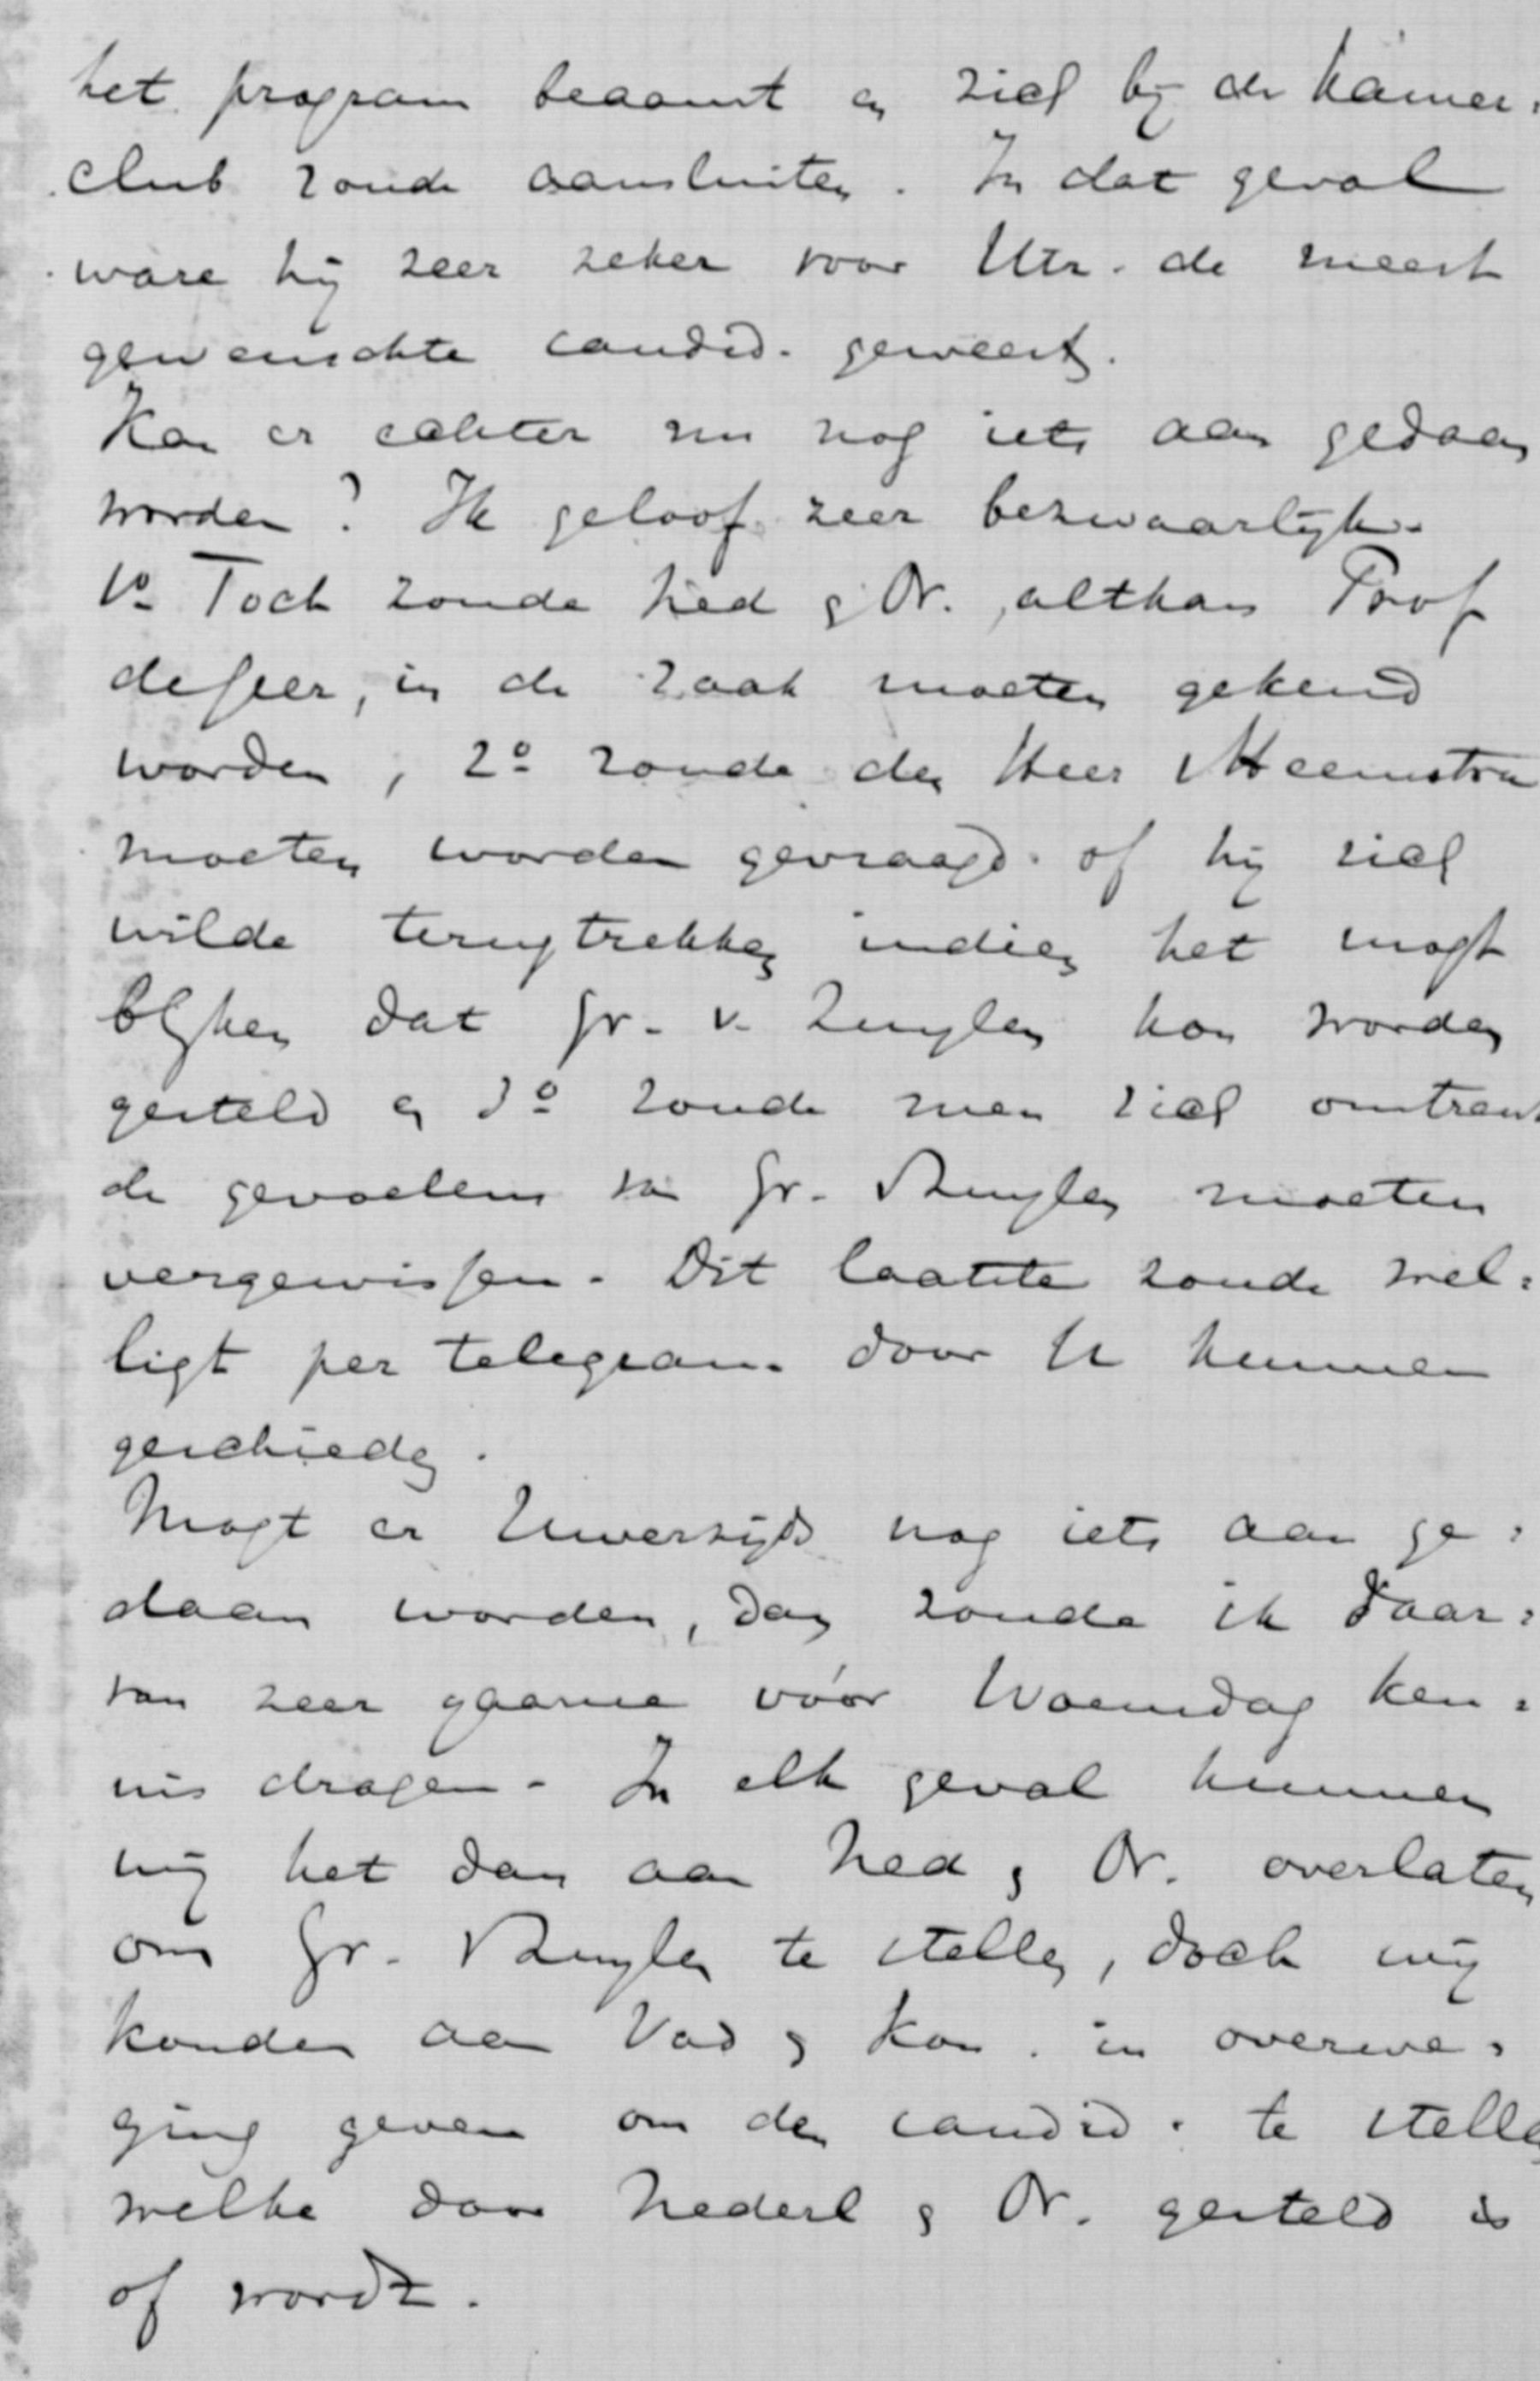 het program beaamt en zich bij de kamer=
club zoude aansluiten. In dat geval
ware hij zeer zeker voor Utr. de meest
gewenschte candid. geweest.
Kan er echter nu nog iets aan gedaan
worden? Ik geloof zeer bezwaarlijk.
1o Toch zoude Ned & Or., althans Prof
de Geer, in de zaak moeten gekend
worden, 2o zoude den Heer v Heemstra
moeten worden gevraagd of hij zich
wilde terugtrekken indien het mogt
blijken dat Gr. v. Zuylen kon worden
gesteld en 3o zoude men zich omtrent
de gevoelens van Gr. v Zuylen moeten
vergewissen. Dit laatste zoude wel=
ligt per telegram. door U kunnen
geschieden.
Mogt er Uwerzijds nog iets aan ge=
daan worden, dan zoude ik daar=
van zeer gaarne vóór Woensdag ken=
nis dragen. In elk geval kunnen
wij het dan aan Ned & Or. overlaten
om Gr. v Zuylen te stellen, doch wij
konden aan Vad & Kon. in overwe=
ging geven om den candid. te stellen
welke door Nederl & Or. gesteld is
of wordt.